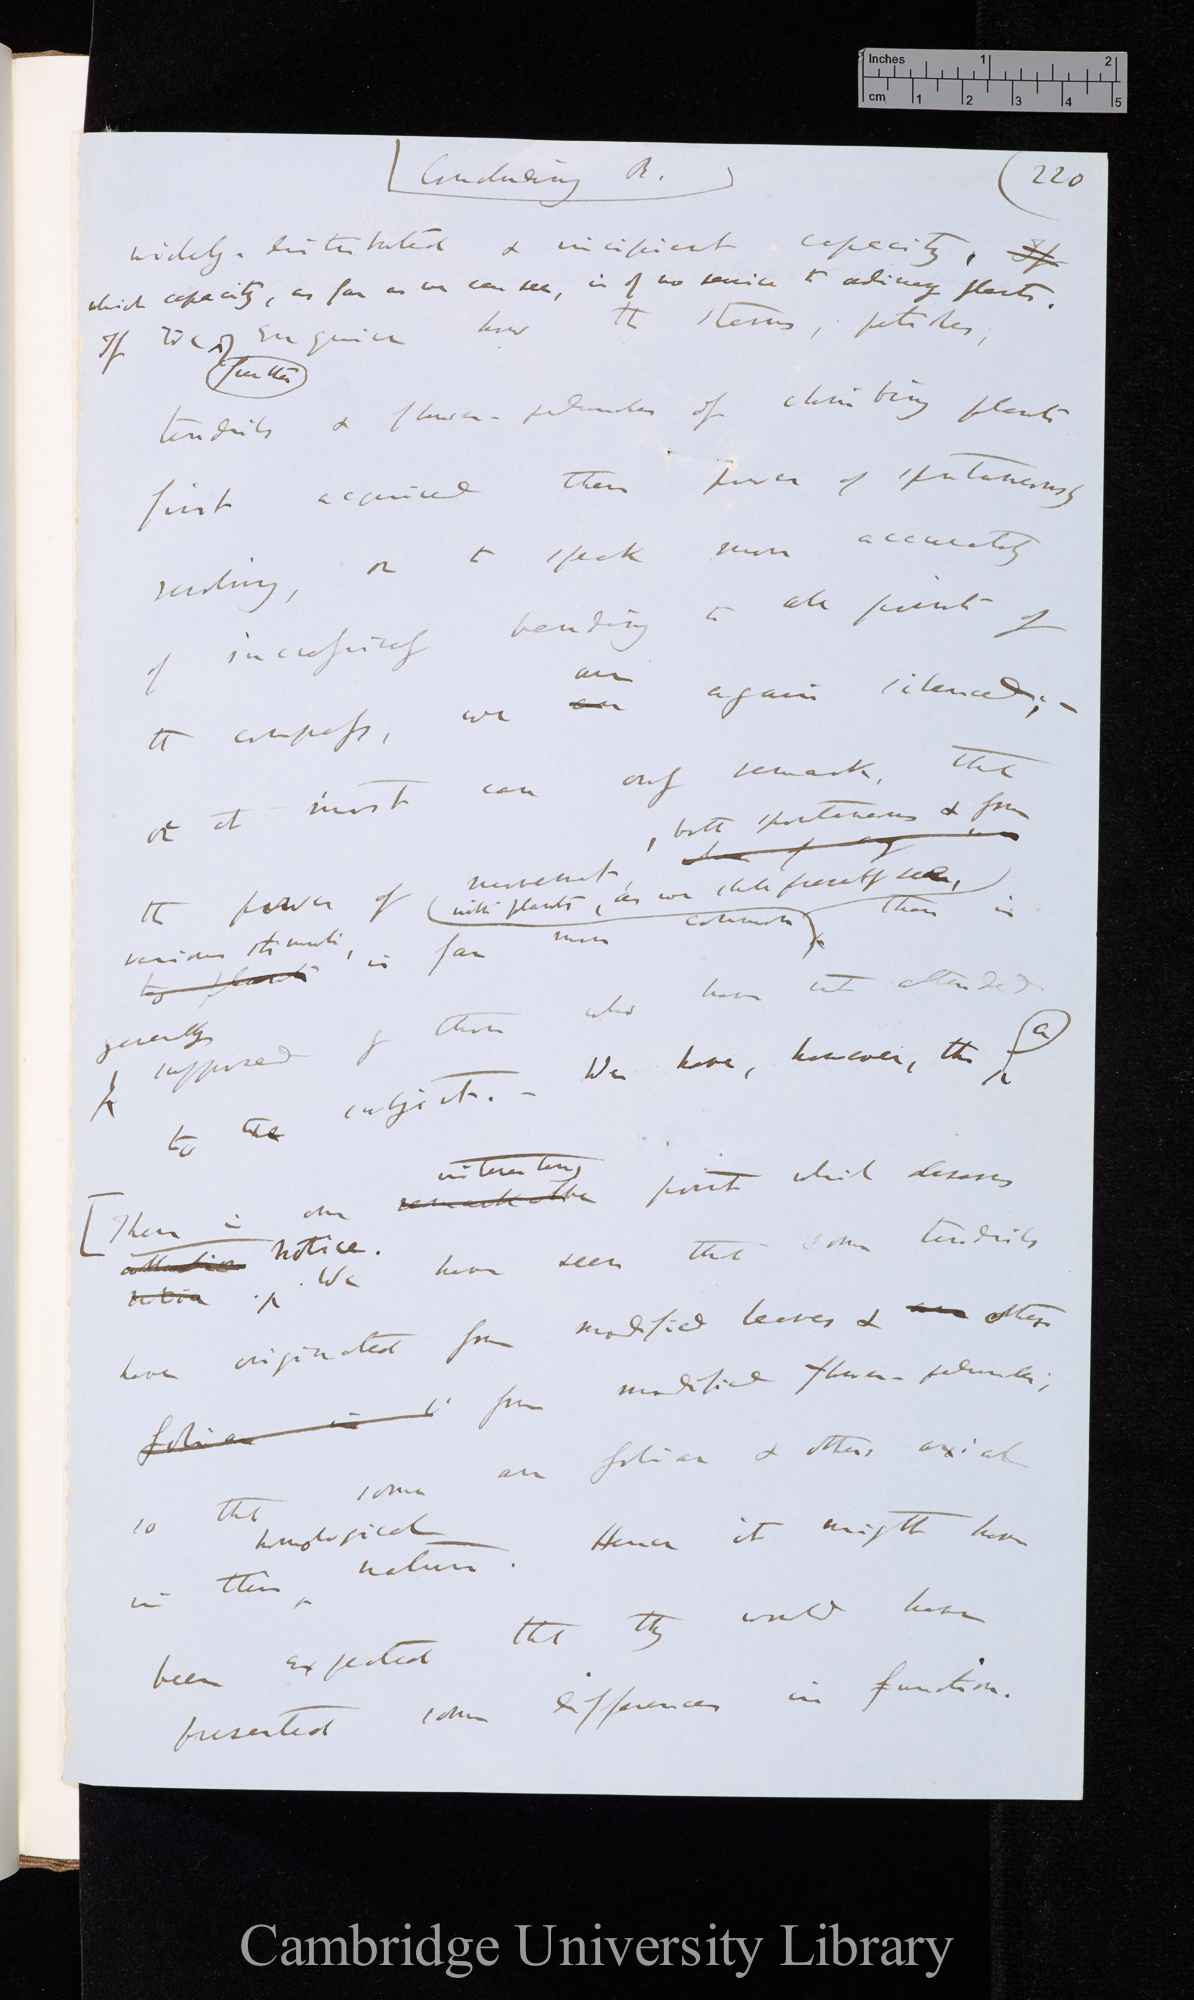 Inches 1 2
cm 1 2 3 4 5
Concluding R.
220
widely-distributed & incipient capacity, If
which capacity, as far as we can see, is of no service to ordinary plants.
If we enquire how the stems, petioles,
further
tendrils & flower-peduncles of climbing plants
first acquired their power of spontaneously
revolving, or to speak more accurately
of successively bending to all points of
are
the compass, we are again silenced; –
or at most can only remark, that
, both spontaneous & from
the power of movement,
with plants, as we shall presently see,
various stimuli, is far more common, than is
by plants
generally
supposed by those who have not attended
to the subject. – We have, however, the
a
interesting
[There is one remarkable point which deserves
attention notice.
notice. We have seen that some tendrils
have originated from modified leaves & others
foliar is from modified flower-peduncles;
so that some are foliar & others axial
homological
in their nature. Hence it might have
been expected that they would have
presented some differences in function.
Cambridge University Library